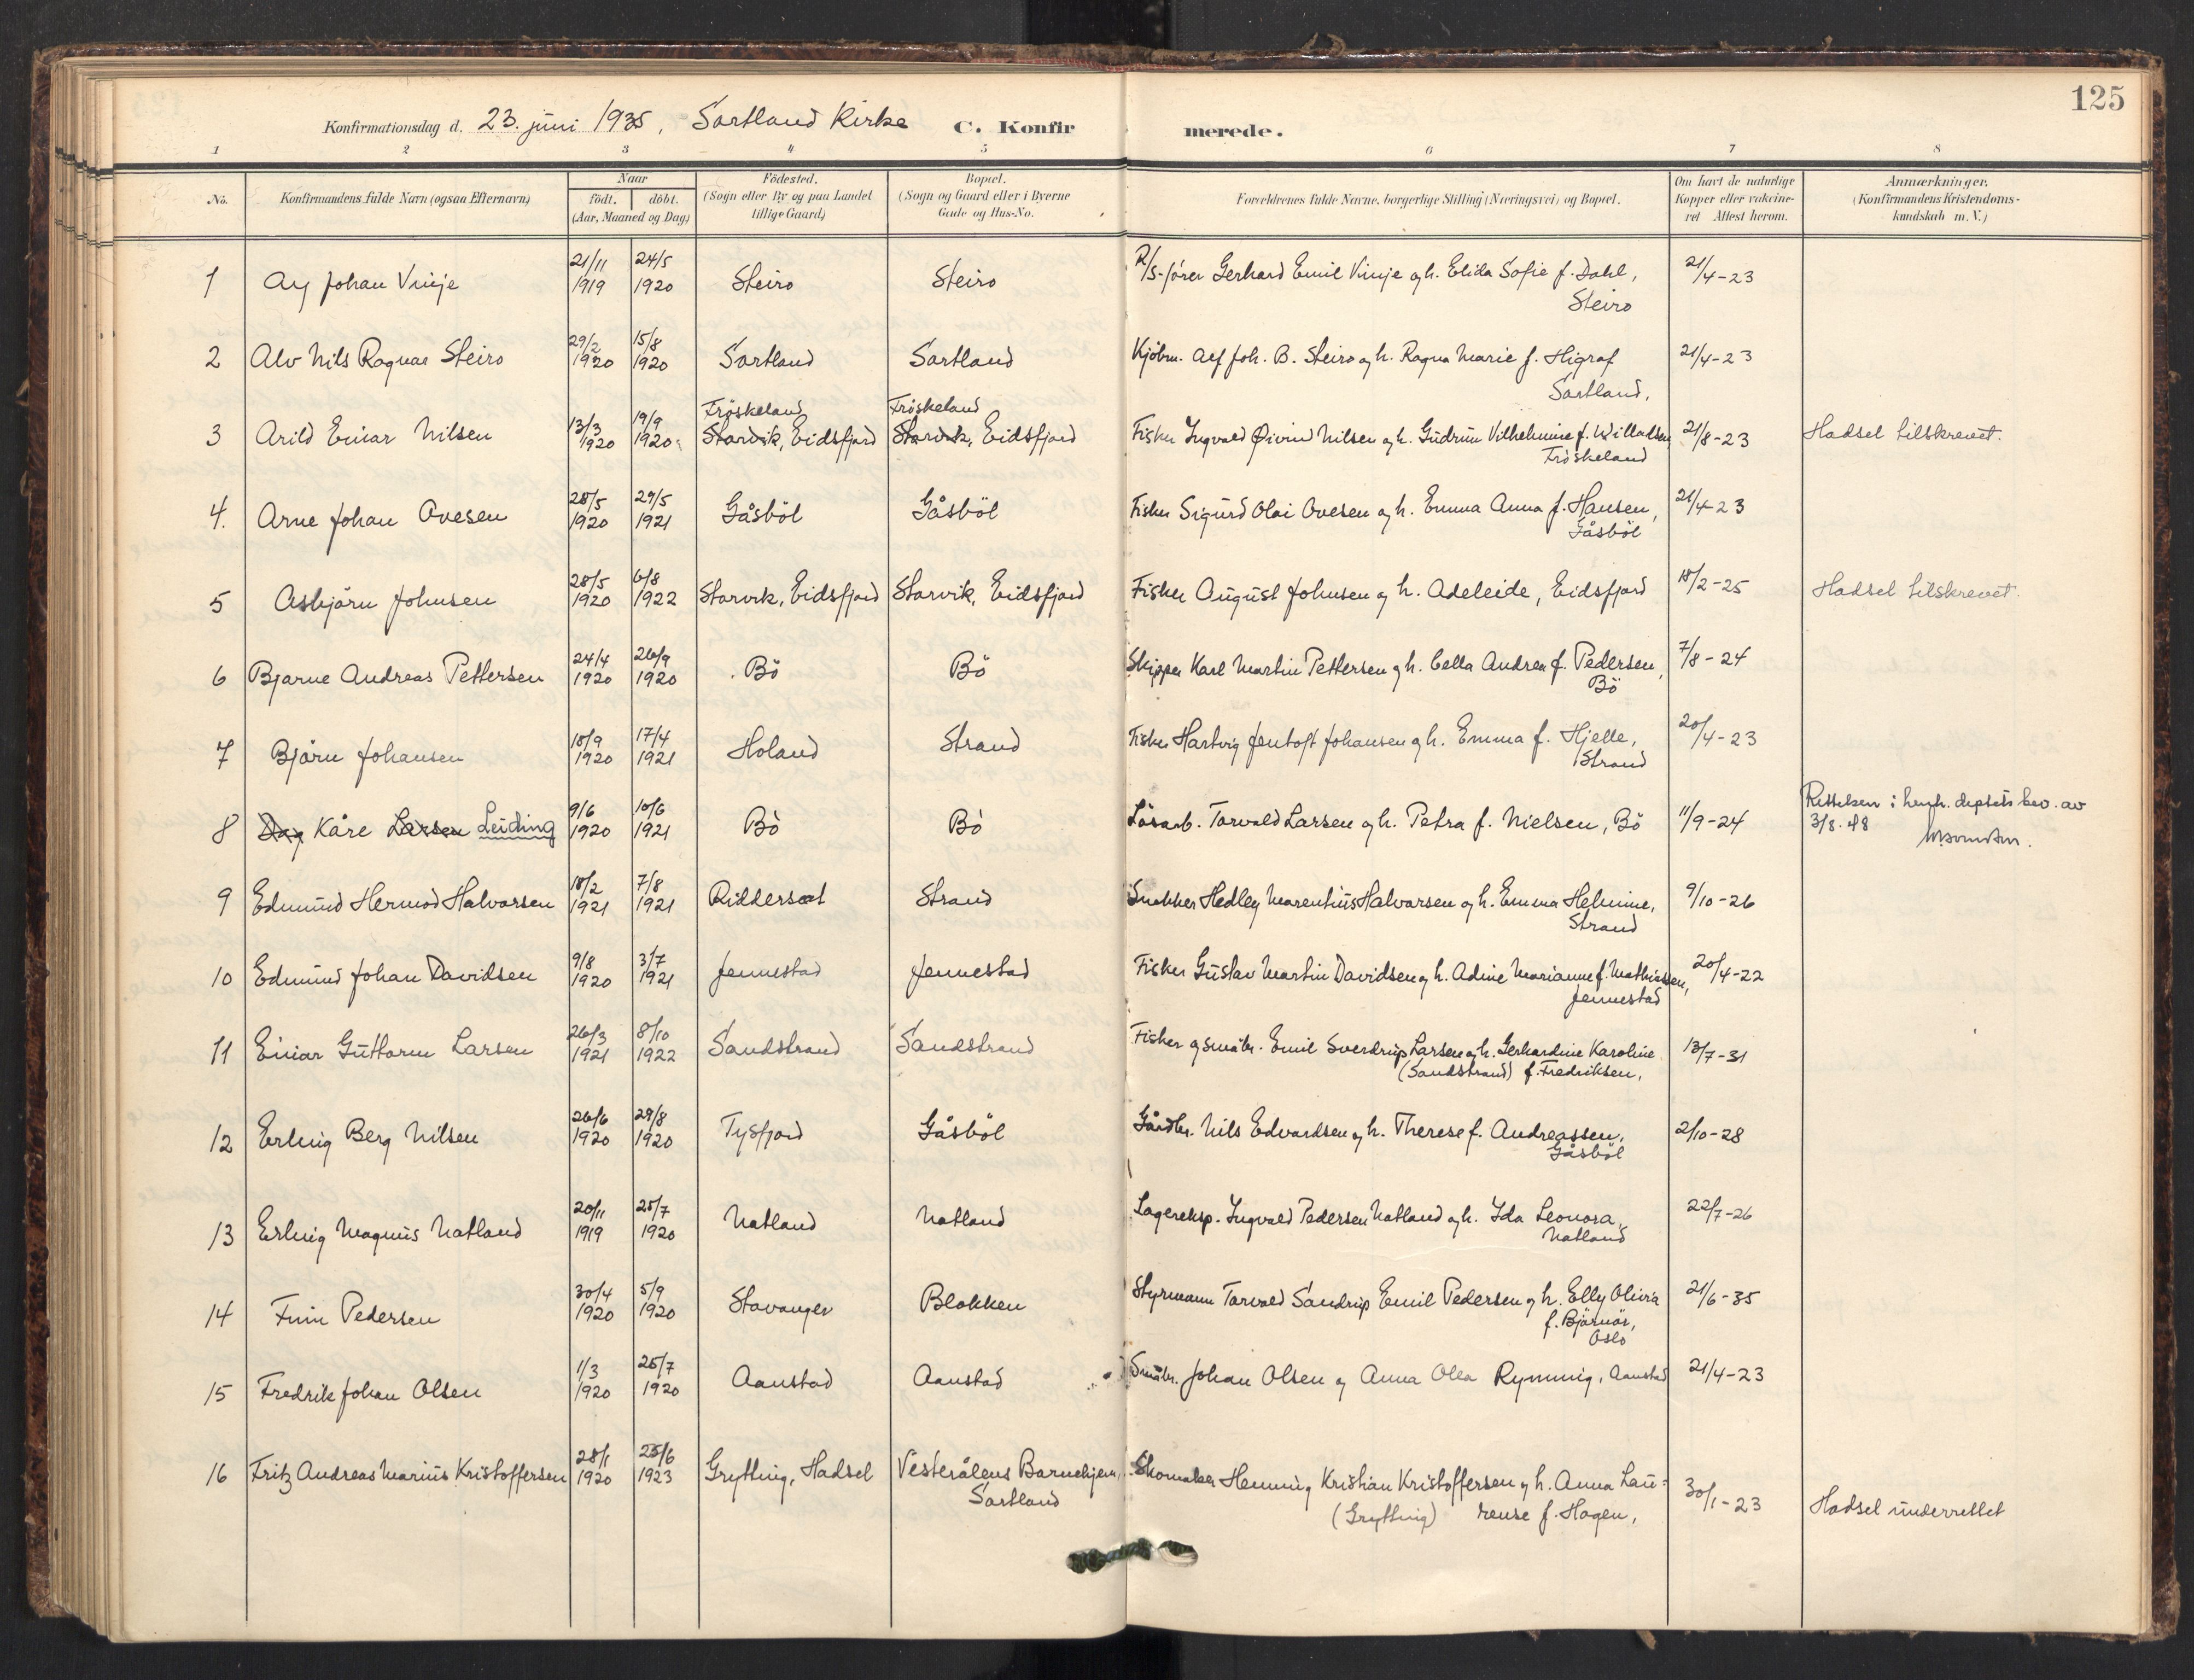 125
Konfirmationsdag d. 23. juni 1935, Sortland Kirke C. Konfirmerede.
1 2 3 4 5 6 7 8
No. Konfirmandens fulde Navn (ogsaa Efternavn) Naar födt. döbt. (Aar, Maaned og Dag) Födested. (Sogn eller By og paa Landet tillige Gaard) Bopæl. (Sogn og Gaard eller i Byerne Gade og Hus-No. Forældrenes fulde Navne, borgerlige Stilling (Næringsvei) og Bopæl. Om havt de naturlige Kopper eller vakcineret Attest herom. Anmærkninger. (Konfirmandens Kristendomskundskab m. V.)
1 Alf Johan Vinje 21/11 1919 24/5 1920 Steiro Steiro R/S-fører Gerhard Emil Vinje og h. Elida Sofie f. Dahl, Steiro 21/4-23
2 Alv Nils Ragnar Steiro 29/2 1920 15/8 1920 Sortland Sortland Kjöbm. Alf Joh. B. Steiro og h. Ragna Marie f. Higraf Sortland, 21/4-23
3 Arild Einar Nilsen 13/3 1920 19/9 1920 Fröskeland Storvik, Eidsfjord Fröskeland Storvik, Eidsfjord Fisker Ingvald Øivind Nilsen og h. Gudrun Vilhelmine f. Willadsen, Fröskeland 21/8-23 Hadsel tilskrevet.
4. Arne Johan Ovesen 28/5 1920 29/5 1921 Gåsböl Gåsböl Fisker Sigurd Olai Ovesen og h. Emma Anna f. Hansen, Gåsböl 21/4-23
5 Asbjörn Johnsen 28/5 1920 6/8 1922 Storvik, Eidsfjord Storvik, Eidsfjord Fisker August Johnsen og h. Adeleide, Eidsfjord 18/2-25 Hadsel tilskrevet.
6 Bjarne Andreas Pettersen 24/4 1920 26/9 1920 Bö Bö Skipper Karl Martin Pettersen og h. Cella Andrea f. Pedersen, Bö 7/8-24
7 Björn Johansen 18/9 1920 17/4 1921 Holand Strand Fisker Hartvig Jentoft Johansen og h. Emma f. Hjelle, Strand 20/4-23
8 Dag Kåre Larsen Leiding 9/6 1920 10/6 1921 Bö Bö Lösarb. Torvald Larsen og h. Petra f. Nielsen, Bö 11/9-24 Rettelsen i henh. deptets bev. av 3/8.48
9 Edmund Hermod Halvorsen 18/2 1921 7/8 1921 Riddersæt Strand Snekker Hedley Marentius Halvorsen og h. Emma Helmine, Strand 9/10-26
10 Edmund Johan Davidsen 9/8 1920 3/7 1921 Jennestad Jennestad Fisker Gustav Martin Davidsen og h. Adine Marianne f. Mathiassen, Jennestad 20/4-22
11 Einar Guttorm Larsen 26/3 1921 8/10 1922 Sandstrand Sandstrand Fisker og småbr. Emil Sverdrup Larsen og h. Gerhardine Karoline (Sandstrand) f. Fredriksen, 13/7-31
12 Erling Berg Nilsen 26/6 1920 29/8 1920 Tysfjord Gåsböl Gårdbr. Nils Edvardsen og h. Therese f. Andreassen, Gåsböl 2/10-28
13 Erling Magnus Natland 20/11 1919 25/7 1920 Natland Natland Lagereksp. Ingvald Pedersen Natland og h. Ida Leonora, Natland 22/7-26
14 Finn Pedersen 30/4 1920 5/9 1920 Stavanger Blokken Styrmann Torvald Sandrup Emil Pedersen og h. Elly Olivia f. Björnör, Oslo 21/6-35
15 Fredrik Johan Olsen 1/3 1920 25/7 1920 Aanstad Aanstad Småbr. Johan Olsen og Anna Olea Rynning, Aanstad 21/4-23
16 Fritz Andreas Marius Kristoffersen 28/1 1920 25/6 1923 Grytting, Hadsel Vesterålens Barnehjem, Sortland Skomaker Henning Kristian Kristoffersen og h. Anna Lau-
(Grytting) rense f. Hagen, 30/1-23 Hadsel underrettet